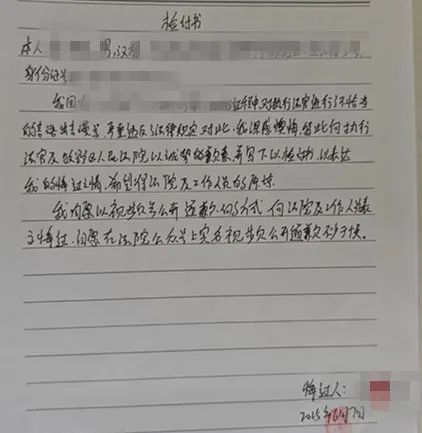 检讨书
本人 男,汉
身份证号
我因 过程中对执行法官进行了不恰当
的言语辱骂 严重违反了法律规定对此,我深感懊悔,在此向执行
法官及 区人民法院以诚挚的歉意,并写下以检讨书,以表达
我的悔过之情,希望得法院及工作人员的原谅.
我自愿以视频号公开道歉的方式向法院及工作人员表
示悔过,自愿在法院公众号上实名视频公开道歉
悔过人:
2025年6月7日